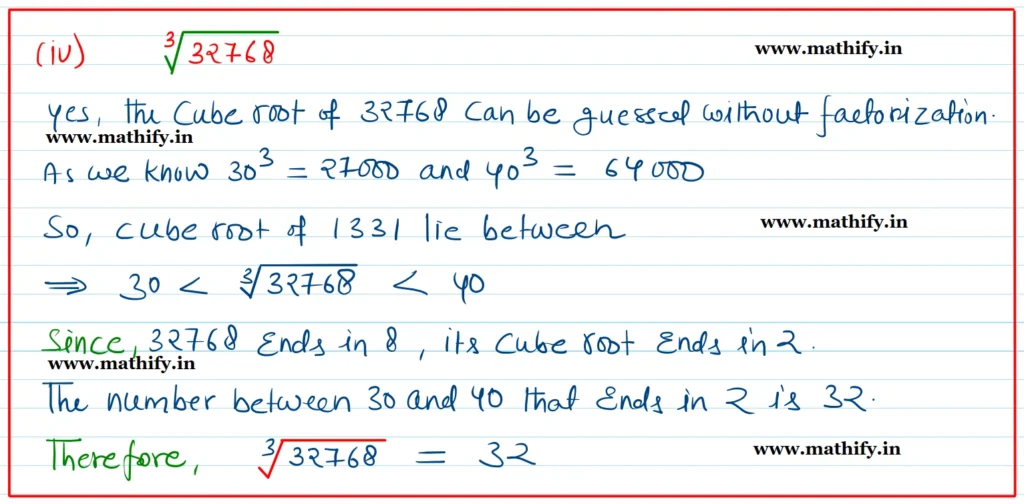 (iv) ∛32768 www.mathify.in
Yes, the Cube root of 32768 can be guessed without factorization.
www.mathify.in
As we know 30³ = 27000 and 40³ = 64000
So, cube root of 1331 lie between www.mathify.in
⇒ 30 < ∛32768 < 40
Since, 32768 Ends in 8, its cube root Ends in 2.
www.mathify.in
The number between 30 and 40 that Ends in 2 is 32.
Therefore, ∛32768 = 32 www.mathify.in